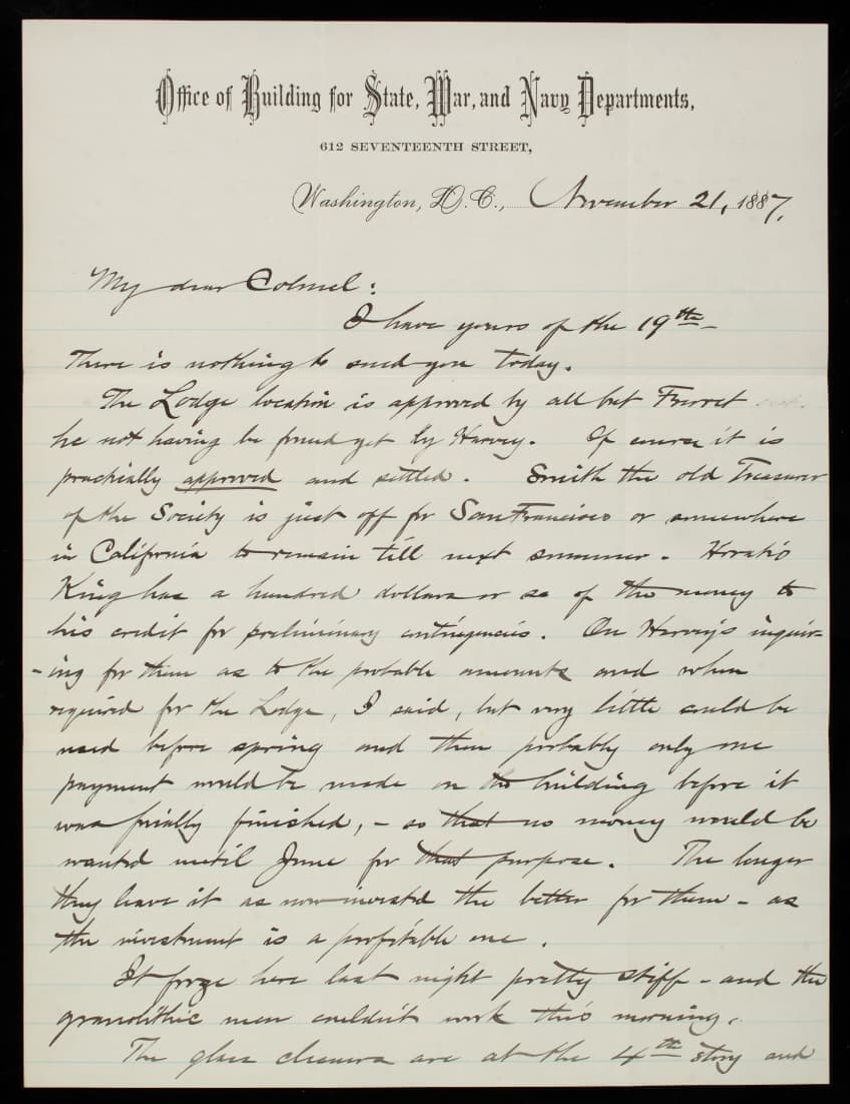 Office of Building for State, War, and Navy Departments,
612 SEVENTEENTH STREET,
Washington, D.C., November 21, 1887,
My dear Colonel:
I have yours of the 19th—
There is nothing to send you today.
The Lodge location is approved by all but
he not having be found yet by Harvey. Of course it is
practically approved and settled. Smith the old Treasurer
of the Society is just off for San Francisco or somewhere
in California to remain till next summer. Horatio
King has a hundred dollars or so of the money to
his credit for preliminary contingencies. On Harvey's inquir-
-ing for them as to the probable amounts and when
required for the Lodge, I said, but very little could be
used before spring and then probably only one
payment would be made on the building before it
was finally finished, - so that no money would be
wanted until June for that purpose. The longer
they leave it as now invested the better for them - as
the investment is a profitable one.
It froze here last night pretty stiff - and the
granolithic men couldn't work this morning.
The glass cleaners are at the 4th story and